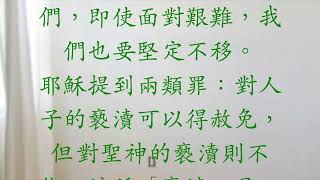 們，即使面對艱難，我
們也要堅定不移。
耶穌提到兩類罪：對人
子的褻瀆可以得赦免，
但對聖神的褻瀆則不